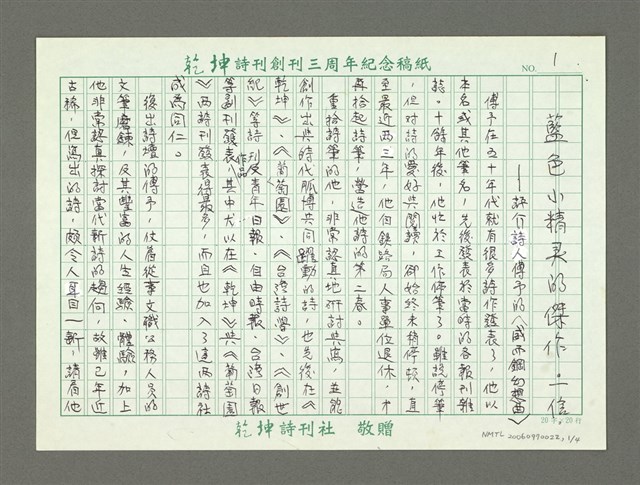 乾坤詩刊創刊三周年紀念稿紙
NO. 1.
藍色小精灵的傑作 一信
——評介詩人傅予的〈威而鋼幻想曲〉
傅予在五十年代就有很多詩作發表了,他以
本名或其他筆名,先後發表於當時的各報刊雜
誌。十餘年後,他忙於工作停筆了。雖説停筆
,但对詩的愛好與閱讀,卻始終未稍停頓,直
至最近兩三年,他自鉄路局人事單位退休,才
再拾起詩筆,營造他詩的第二春。
重拾詩筆的他,非常認真地研討與寫,並能
創作出與時代脈博共同躍動的詩,也先後在《
乾坤》、《葡萄園》、《台灣詩學》、《創世
紀》等詩刊及青年日報、自由時報、台灣日報
等副刊發表作品,其中尤以在《乾坤》與《葡萄園
》兩詩刊發表得最多,而且也加入了這兩詩社
成為同仁。
後出詩壇的傅予,仗着從事文職公務人員的
文筆磨鍊,及其豐富的人生經驗、體驗,加上
他非常認真探討當代新詩的趨向,故雖已年近
古稀,但寫出的詩,頗令人耳目一新,請看他
20字×20行
乾坤詩刊社 敬贈
NMTL 20060970022, 1/4